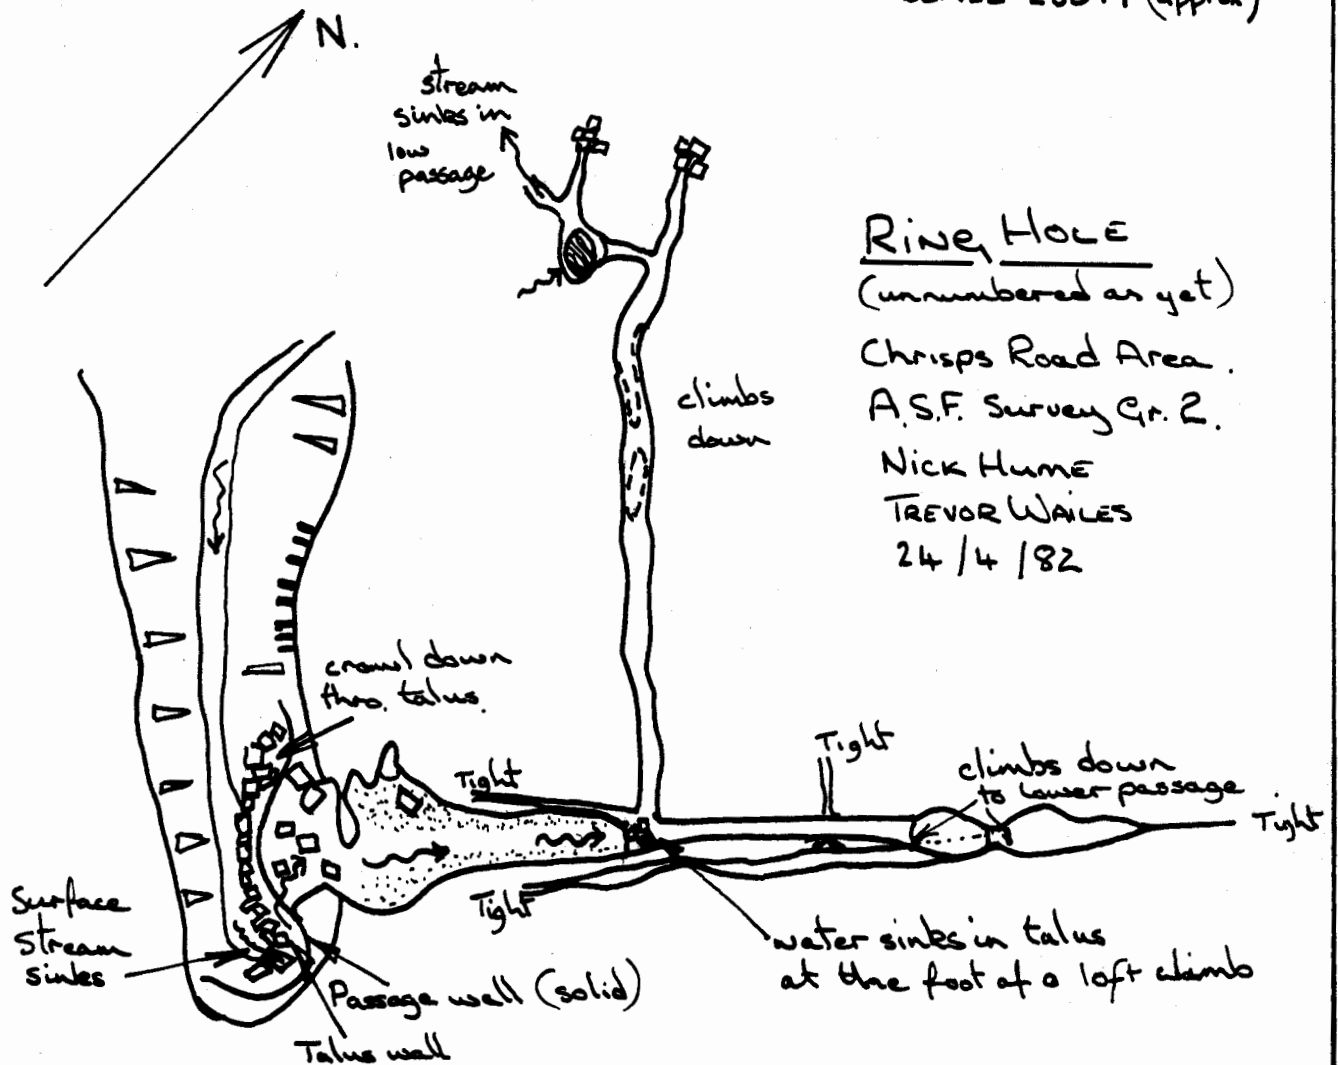 (approx)
N.
stream
sinks in
low
passage
RING HOLE
(unnumbered as yet)
Chrisps Road Area.
A.S.F. Survey Gr. 2.
NICK HUME
TREVOR WAILES
24/4/82
climbs
down
crawl down
thro. talus.
Tight
Tight
climbs down
to lower passage
Tight
Tight
Surface
Stream
sinks
water sinks in talus
at the foot of a 10ft climb
Passage wall (solid)
Talus wall